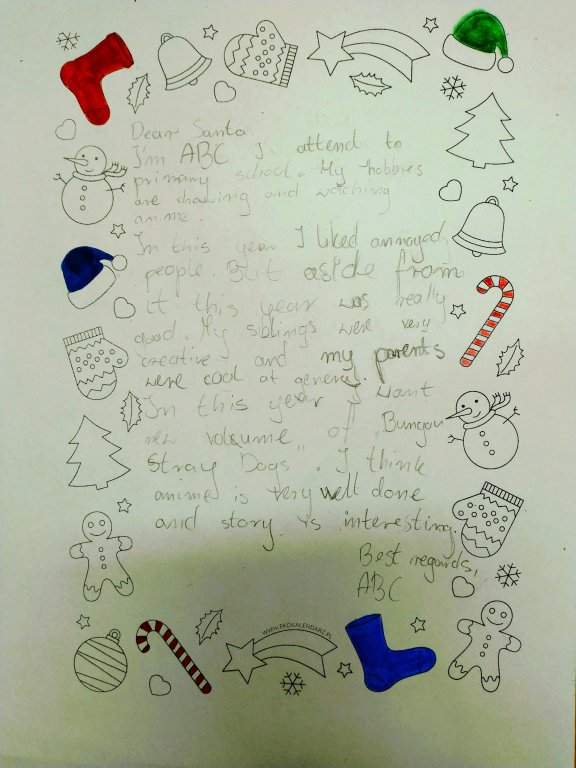 Dear Santa.
I'm ABC I attend to
primary school. My hobbies
are drawing and watching
anime.
In this year I liked annoyed
people. But aside from
it this year was really
good. My siblings were very
creative and my parents
were cool at general.
In this year I want
new voluume „ of „Bungou
Stray Dogs". I think
anime is very well done
and story is interesting.
Best regards,
ABC
WWW.EKOKALENDARZ.PL